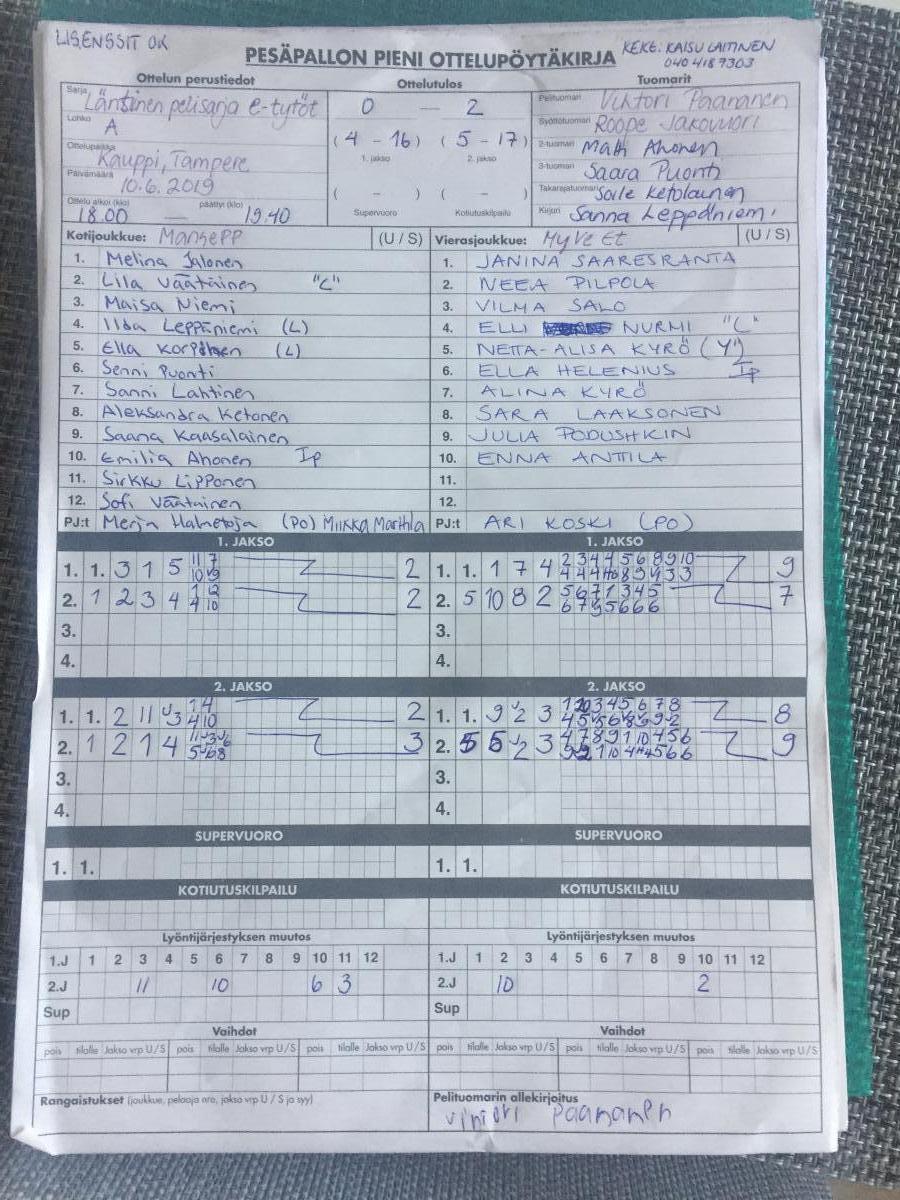 LISENSSIT OK
PESÄPALLON PIENI OTTELUPÖYTÄKIRJA
KEKE. KAISU LAITINEN
040 4187303
Ottelun perustiedot
Sarja Läntinen pelisarja e-tytöt
Lohko A
Ottelupaikka Kauppi, Tampere
Päivämäärä 10.6.2019
Ottelu alkoi (klo) 18.00 — päättyi (klo) 19.40
Ottelutulos
0 — 2
(4 - 16) (5 - 17)
1. jakso 2. jakso
( - ) ( - )
Supervuoro Kotiutuskilpailu
Tuomarit
Pelituomari Viktori Paananen
Syöttötuomari Roope Jakovuori
2-tuomari Matti Ahonen
3-tuomari Saara Puonti
Takarajatuomari Soile Ketolainen
Kirjuri Sanna Leppäniemi
Kotijoukkue: ManSePP (U / S)
1. Melina Jalonen
2. Lila Väätäinen "C"
3. Maisa Niemi
4. Ilda Leppäniemi (L)
5. Ella (L)
6. Senni Puonti
7. Sanni Lahtinen
8. Aleksandra Ketonen
9. Saana Kaasalainen
10. Emilia Ahonen Ip
11. Sirkku Lipponen
12. Sofi Väätäinen
PJ:t Merja (PO) Miikka Marttila
Vierasjoukkue: MyVe Et (U / S)
1. JANINA SAARESRANTA
2. NEEA PILPOLA
3. VILMA SALO
4. ELLI NURMI "C"
5. NETTA-ALISA KYRÖ (Y)
6. ELLA HELENIUS Ip
7. ALINA KYRÖ
8. SARA LAAKSONEN
9. JULIA PODUSHKIN
10. ENNA ANTTILA
11.
12.
PJ:t ARI KOSKI (PO)
1. JAKSO
1. 1. 3 1 5 2
2. 1 2 3 4 2
3.
4.
1. JAKSO
1. 1. 1 7 4 9
2. 5 10 8 2 7
3.
4.
2. JAKSO
1. 1. 2 11 3 2
2. 1 2 1 4 3
3.
4.
2. JAKSO
1. 1. 9 2 3 8
2. 5 5 2 3 9
3.
4.
SUPERVUORO
1. 1.
SUPERVUORO
1. 1.
KOTIUTUSKILPAILU
KOTIUTUSKILPAILU
Lyöntijärjestyksen muutos
1.J 1 2 3 4 5 6 7 8 9 10 11 12
2.J 11 10 6 3
Sup
Lyöntijärjestyksen muutos
1.J 1 2 3 4 5 6 7 8 9 10 11 12
2.J 10 2
Sup
Vaihdot
pois tilalle Jakso vrp U/S pois tilalle Jakso vrp U/S pois tilalle Jakso vrp U/S
Vaihdot
pois tilalle Jakso vrp U/S pois tilalle Jakso vrp U/S pois tilalle Jakso vrp U/S
Rangaistukset (joukkue, pelaaja nro, jakso vrp U / S ja syy)
Pelituomarin allekirjoitus
Viktori Paananen